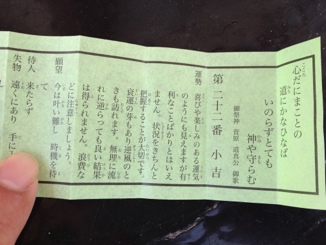 心だにまことの
道にかなひなば
いのらずとても
神や守らむ
御祭神 菅原 道真公 御歌
第二十二番 小吉
運勢 喜びや楽しみのある運気
のようにも見えますが有
利なことばかりとはいえ
ません。状況をきちんと
把握することが大切です。
衰運の芽もあり逆風のと
きも訪れます。無理に流
れに逆らっても良い結果
は得られません。浪費な
どに注意しましょう。
願望 今は叶い難し 時機を待
て
待人 来たらず
失物 遠くにあり 手に